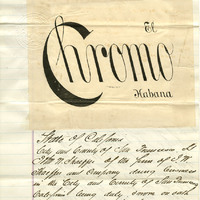 El
Chromo
Habana
State of California
City and County of San Francisco
of the firm of
and Company doing business
in the City and County of San Francisco
California being duly sworn